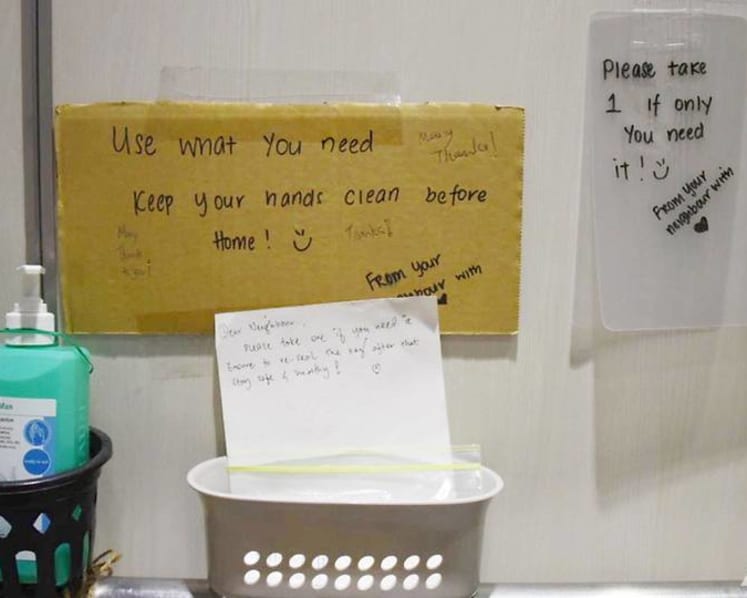 Use what you need
Many
Thanks!
Keep your hands clean before
Home!
Thanks!
Many
Thank
to you!
From your
neighbour with
Please take
1 if only
you need
it!
From your
neighbour with
Dear Neighbour,
Please take one if you need it
Ensure to re-seal the bag after that
Stay safe & healthy!